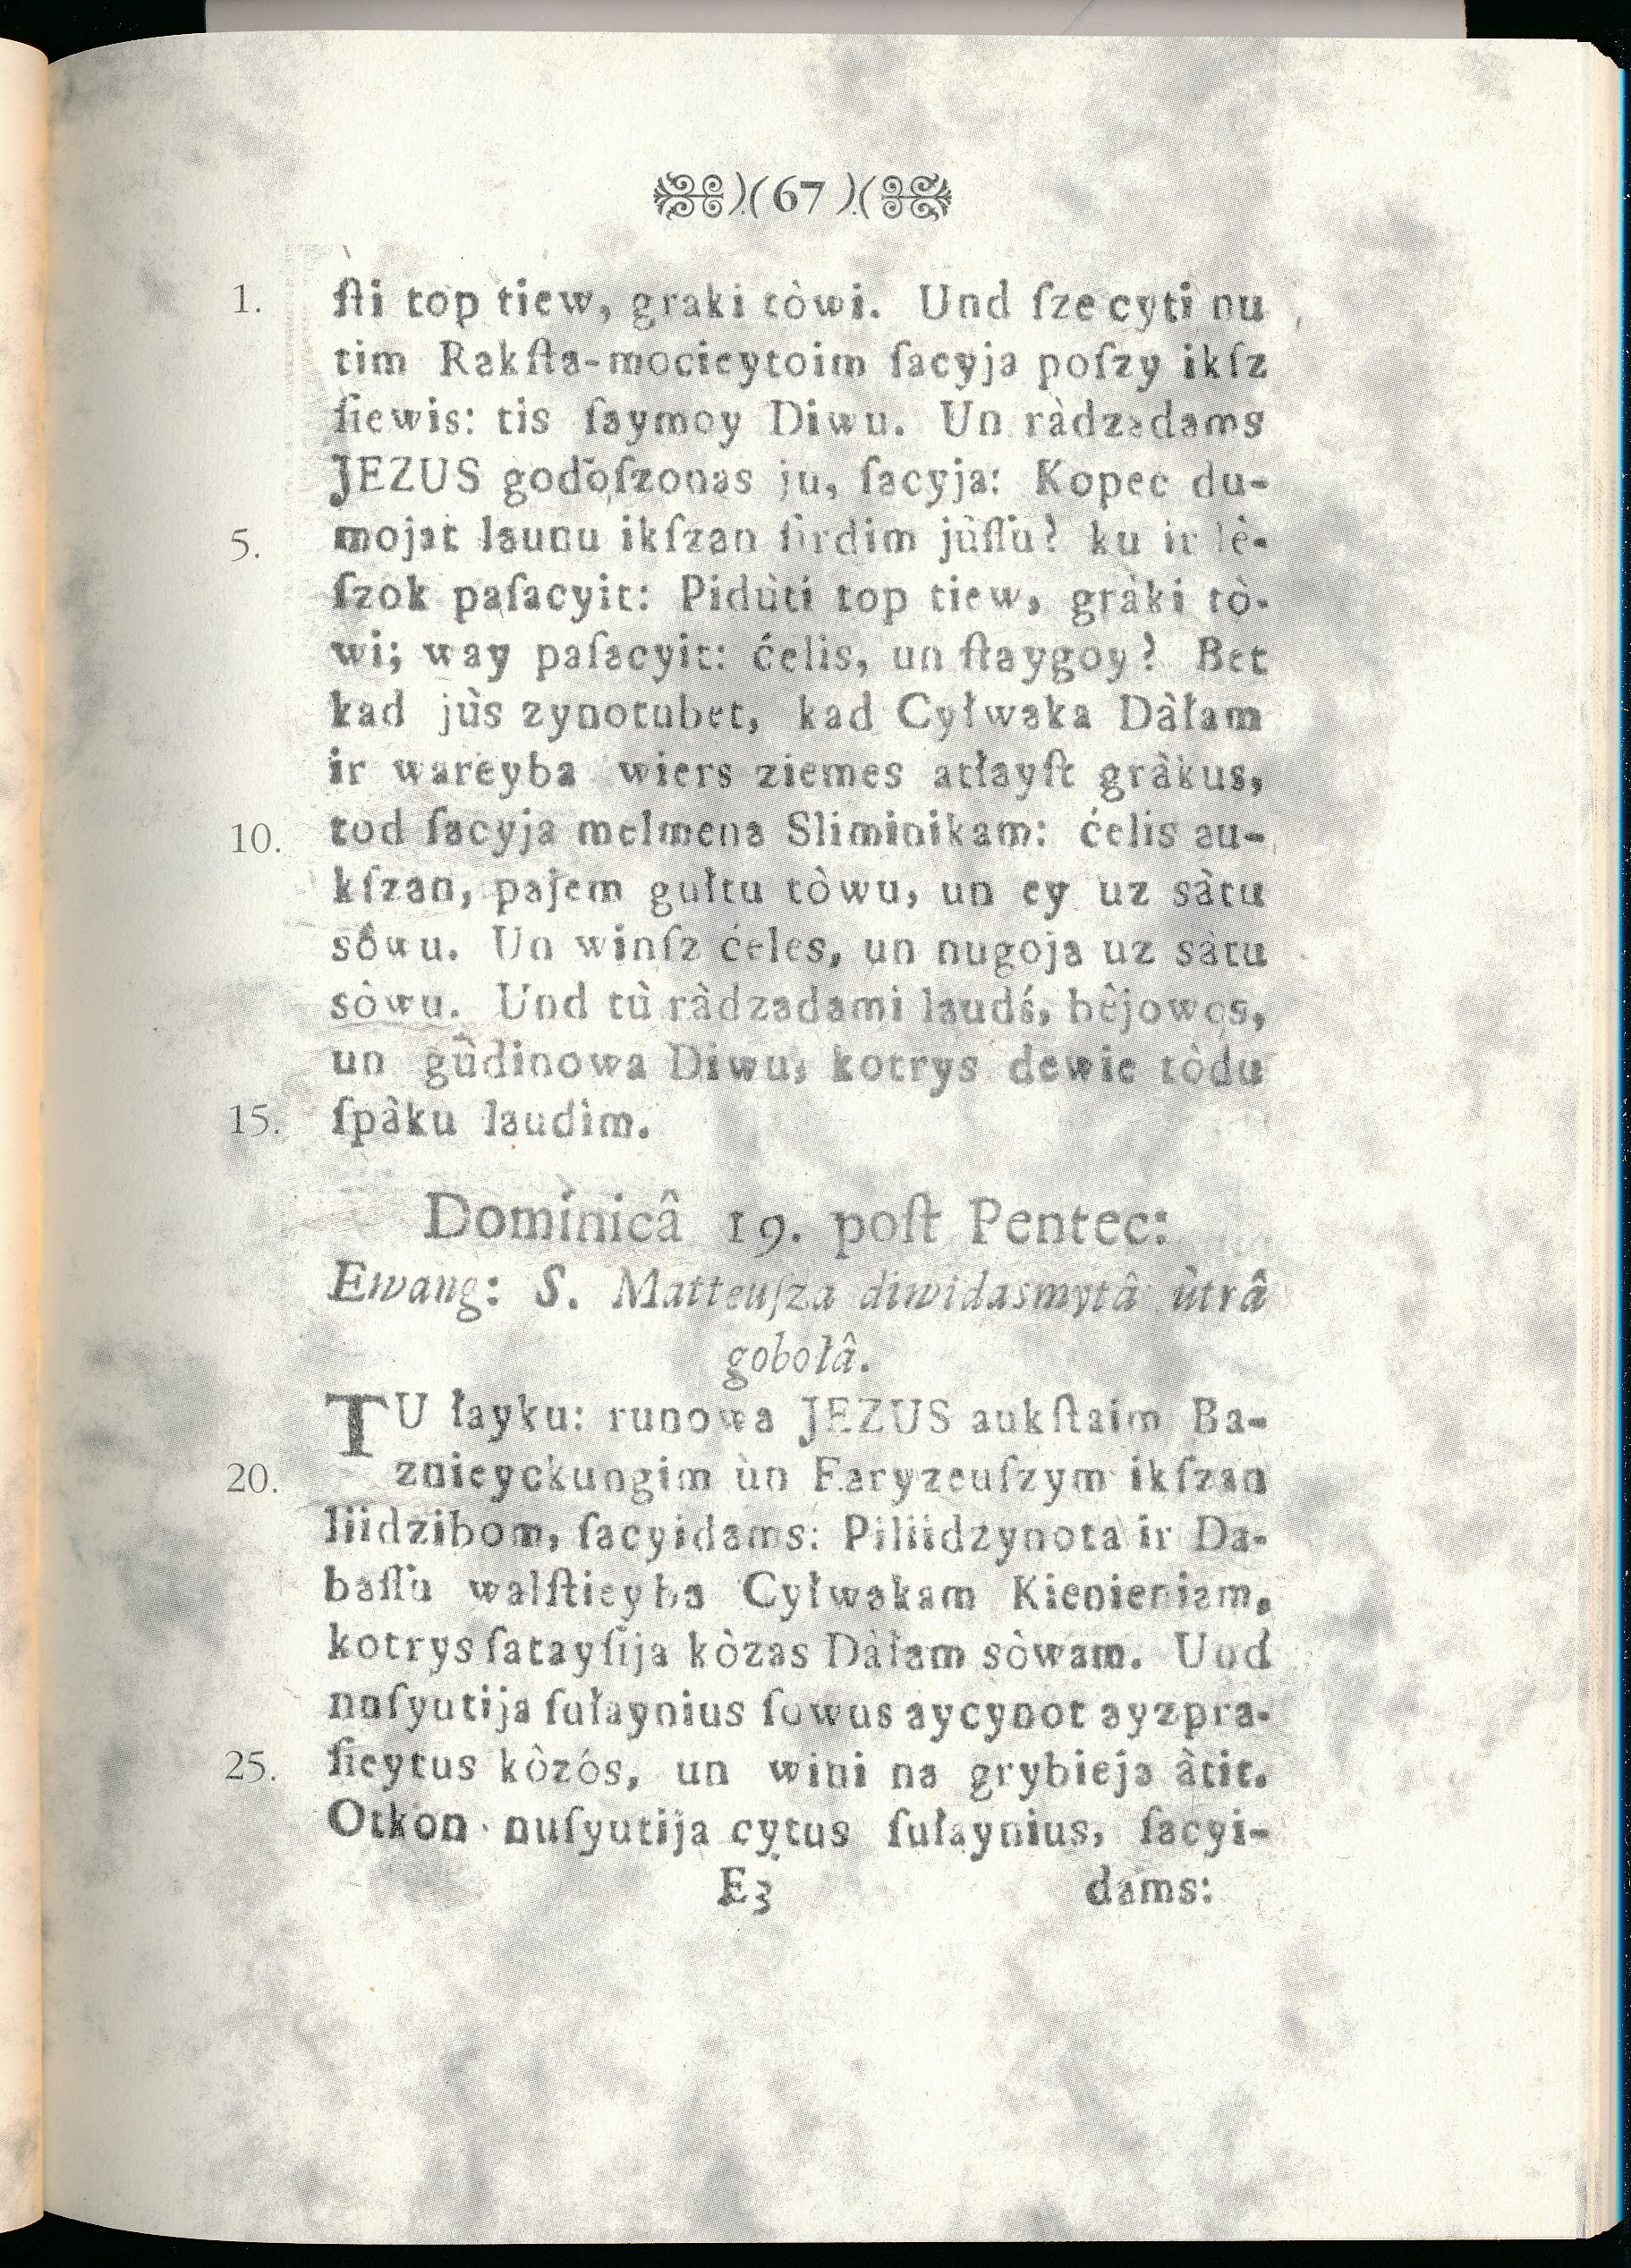 )(67)(
1. ſti top tiew, graki tòwi. Und ſze cyti nu
tim Rakſta-mocieytoim ſacyja poſzy ikſz
ſiewis: tis ſaymoy Diwu. Un ràdzadams
JEZUS godoſzonas ju, ſacyja: Kopec du-
5. mojat launu ikſzan ſirdim jùſſu? ku ir lè-
ſzok paſacyit: Pidùti top tiew, gràki tò-
wi; way paſacyit: ćelis, un ſtaygoy? Bet
kad jùs zynotubet, kad Cyłwaka Dàłam
ir wareyba wiers ziemes atłayſt gràkus,
10. tod ſacyja melmena Sliminikam: ćelis au-
kſzan, pajem gułtu tòwu, un ey uz sàtu
sôwu. Un winſz ćeles, un nugoja uz sàtu
sòwu. Und tù ràdzadami laudś, bêjowos,
un gûdinowa Diwu, kotrys dewie tòdu
15. ſpàku laudim.
Dominicâ 19. poſt Pentec:
Ewang: S. Matteuſza diwidasmytâ ùtrâ
gobołâ.
TU łayku: runowa JEZUS aukſtaim Ba-
20. znieyckungim ùn Faryzeuſzym ikſzan
liidzibom, ſacyidams: Piliidzynota ir Da-
baſſu walſtieyba Cyłwakam Kienieniam,
kotrys ſatayſija kòzas Dàłam sòwam. Und
nuſyutija ſułaynius ſowus aycynot ayzpra-
25. ſieytus kòzós, un wini na grybieja àtit.
Otkon nuſyutija cytus ſułaynius, ſacyi-
E3 dams: